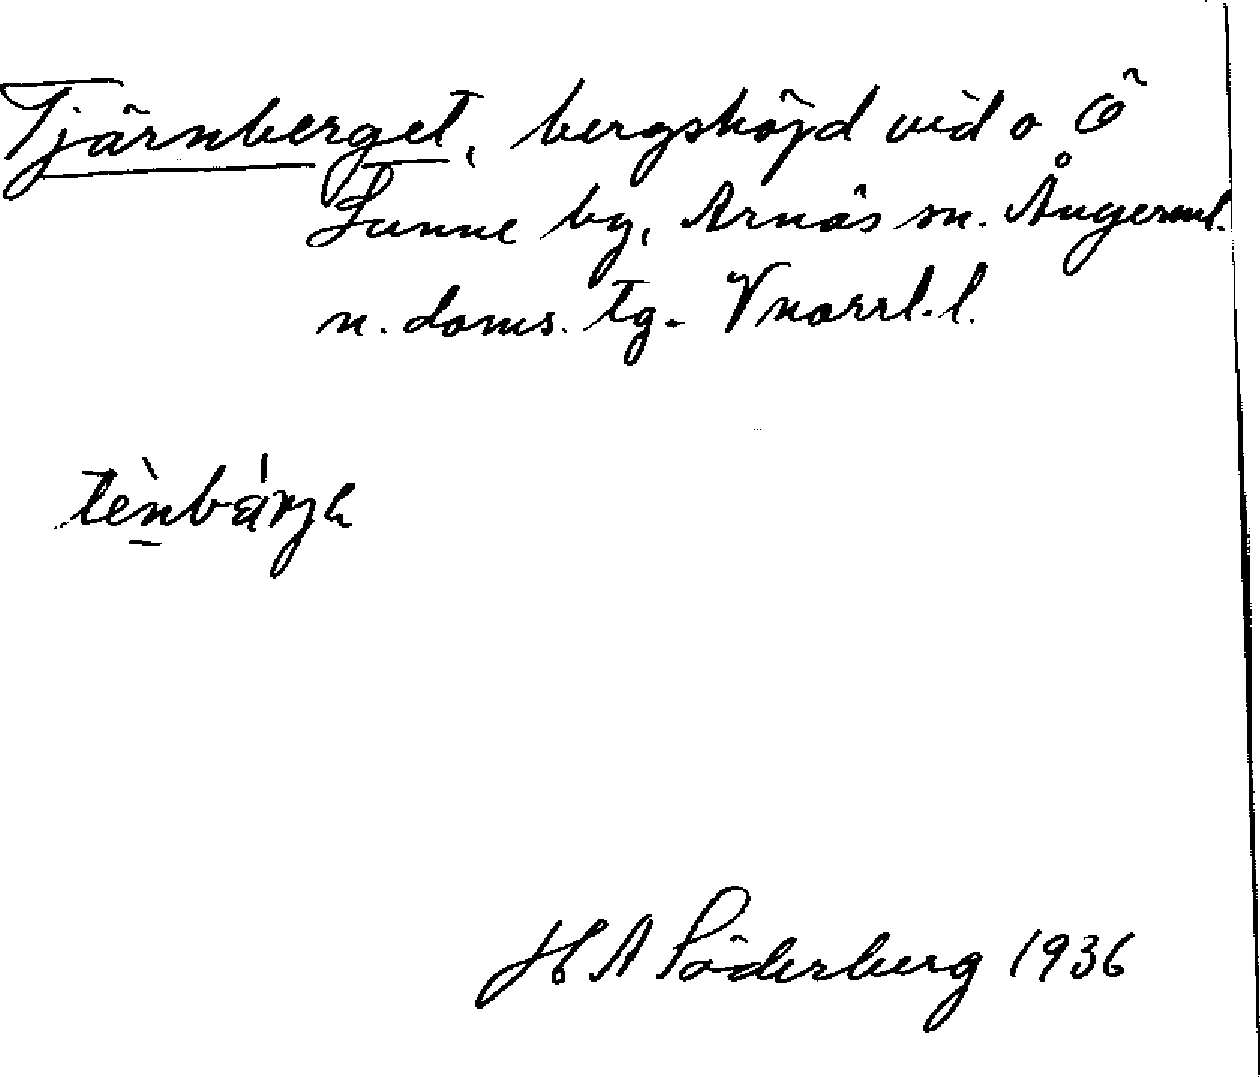 Tjärnberget, bergshöjd vid o Ö
Sunne by, Arnäs sn. Ångerml.
n. doms. tg. Vnorrl. l.
tènbárjh
H A Söderberg 1936